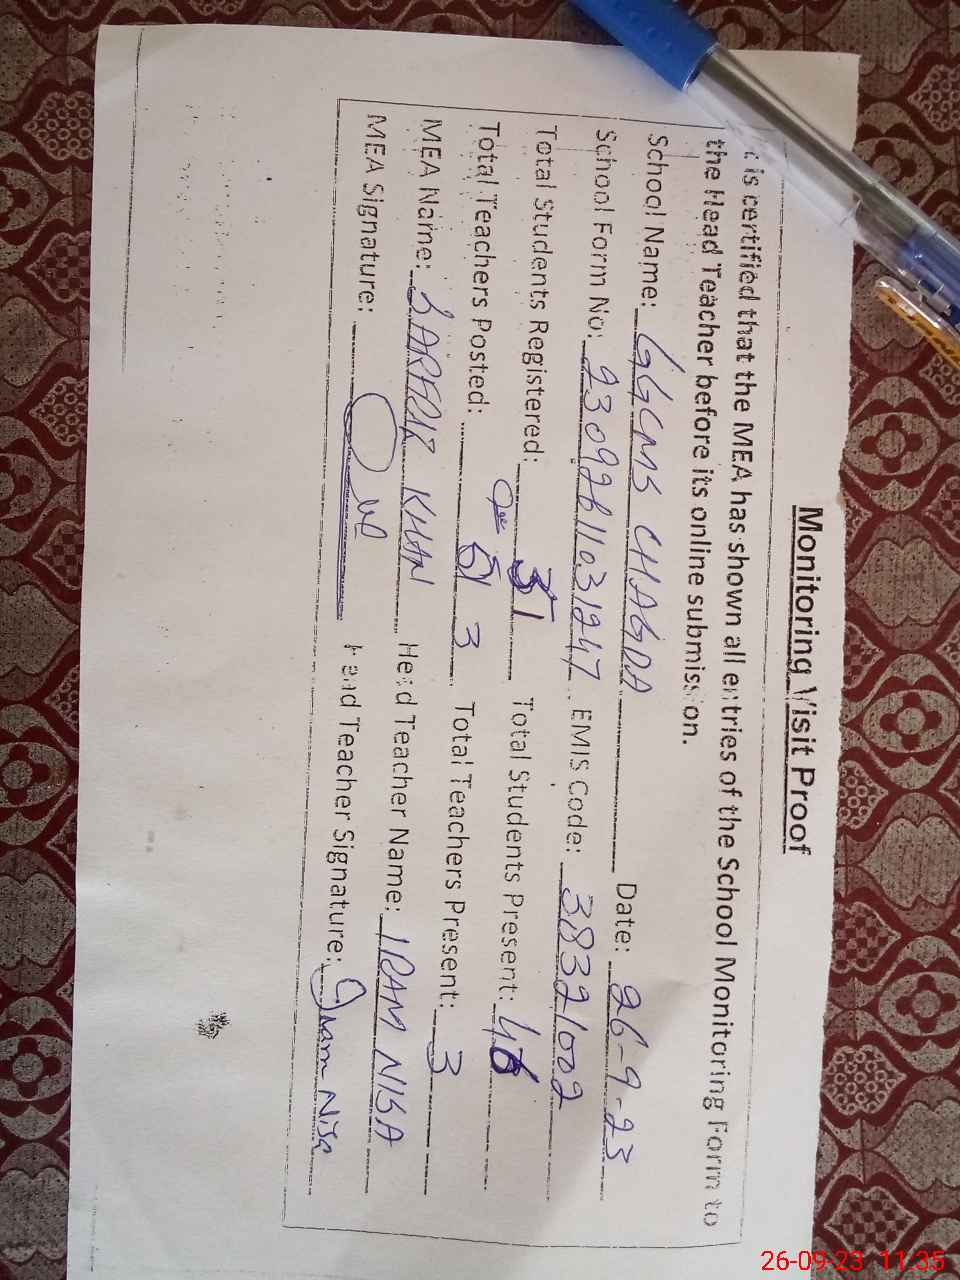 Monitoring Visit Proof
t is certified that the MEA has shown all entries of the School Monitoring Form to
the Head Teacher before its online submission.
School Name: GGCMS CHAGDA Date: 26-9-23
School Form No: 23092B11031247 EMIS Code: 38321002
Total Students Registered: 51 Total Students Present: 46
Total Teachers Posted: 3 Total Teachers Present: 3
MEA Name: SARFRAZ KHAN Head Teacher Name: IRAM NISA
MEA Signature: Head Teacher Signature: Iram Nisa
26-09-23 11:35